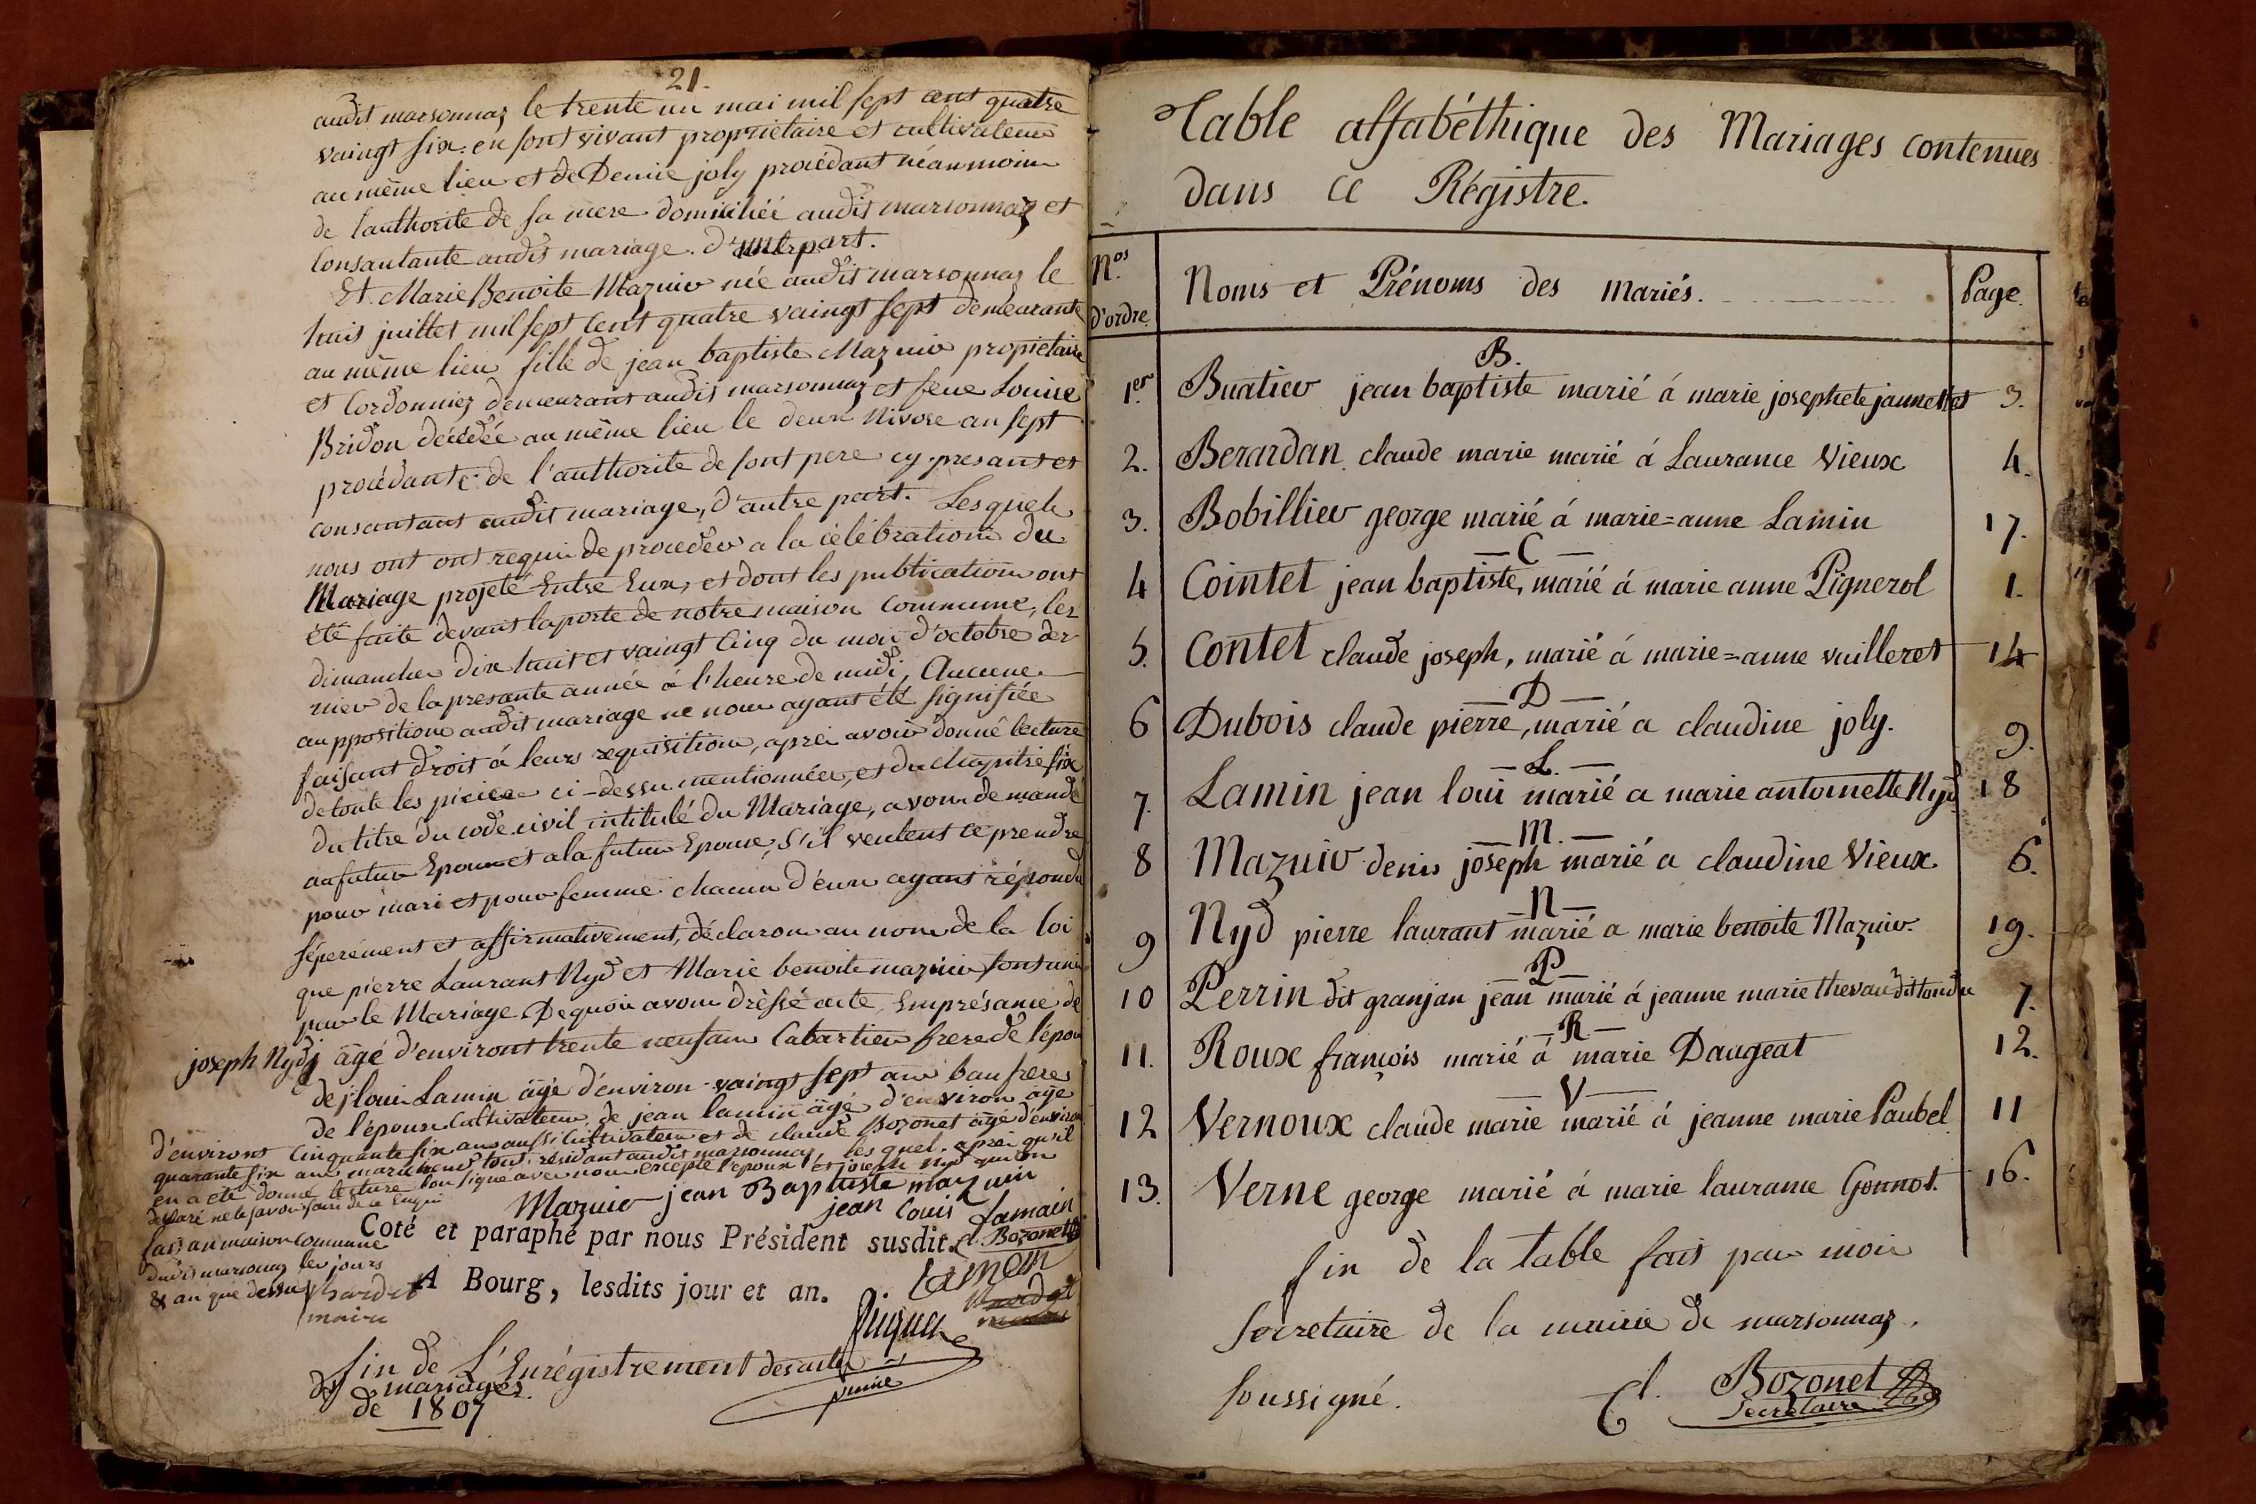 21.
audit marsonnaz le trente un mai mil sept cent quatre
vaingt six. en sont vivant propriétaire et cultivateur
au même lieu et de Denise joly procédant néanmoin
de l'authorité de sa mere domiciliéé audit marsonnaz et
Consantante audit mariage. d'une part.
Et Marie Benoite Mazuir née audit marsonnaz le
huit juillet mil sept Cent quatre vaingt sept demeurante
au même lieu fille de jean baptiste Mazuir propietaire
et Cordonnier demeurant audit marsonnaz et feue Louise
Bridon décédée au même lieu le deux Nivose an sept
procédante de l'authorité de sont pere cy-presant et
consantant audit mariage, d'autre part. Lesquels
nous ont ont requis de proceder a la célébration du
Mariage projeté Entre Eux, et dont les publications ont
été faite devant la porte de notre maison Commune, les
dimanches dix huit et vaingt Cinq du mois d'octobre der-
nier de la presante année à l'heure de midi, Aucune
aupposition audit mariage ne nous ayant été signifiée
faisant droit á leurs requisition, aprés avoir donné lecture
de toute les pieces ci-dessu mentionnées, et du chapitre six
du titre du code civil intitulé du Mariage, avons demandé
au futur Epoux et a la futur Epouse, S'il veulent ce prendre
pour mari et pour femme chacun d'eux ayant répondu
séperément et affirmativement, déclarons au nom de la loi
que pierre Laurant Nyd et Marie benoite mazuir sont unis
par le Mariage. De quoi avons dréssé acte, En présance de
joseph Nydj âgé d'environt trente neuf ans Cabartier frere de l'époux
de j. louis Lamin âgé d'environ vaingt sept ans bau frere
de l'époux Cultivateur, de jean lamin âgé d'environ âge
d'environt Cinquante six ans aussi Cultivateur et de claude Bozonet âgé d'environ
quarante six ans marichand tous résidant audit marsonnay, les quel. aprés qu'il
en a eté donné lecture l'on signé avec nous excepté l'époux et joseph nyd qui on
déclaré ne le savoir faire de ce Enqui
Mazuir jean Baptiste mazuir
jean louis Lamain
Coté et paraphé par nous Président susdit.
Cl. Bozonet
fait an maison Commune
dudit marsonnaz les jours
& an que dessu
A Bourg, lesdits jour et an.
Lamein
maire
fin de L'Enrégistrement des actes
de mariages
de 1807
Table alfabéthique des Mariages contenues
dans ce Régistre.
Nos d'ordre
Noms et Prénoms des mariés.
Page.
B.
1er Buatier jean baptiste marié á marie josephete jannettet 3.
2. Berardan claude marie marié á Laurance Vieux 4.
3. Bobillier george marié á marie=anne Lamin 17.
— C —
4 Cointet jean baptiste, marié á marie anne Pignerol 1.
5. Contet claude joseph, marié á marie=anne vuilleret 14
— D —
6 Dubois claude pierre, marié a claudine joly. 9.
— L. —
7. Lamin jean loui marié a marie antoinette Nyd 18
— M. —
8 Mazuir denis joseph marié a claudine Vieux 6.
— N —
9 Nyd pierre laurant marié a marie benoite Mazuir. 19.
P
10 Perrin dit granjan jean marié á jeanne marie thevau dit tandu 7.
— R. —
11. Roux françois marié á marie Daugeat 12.
— V —
12 Vernoux claude marie marié á jeanne marie Paubel 11
13. Verne george marié á marie laurance Gonnot. 16.
fin de la table fais par moi
secretaire de la mairie de marsonnaz.
soussigné.
Cl. Bozonet
Secretaire